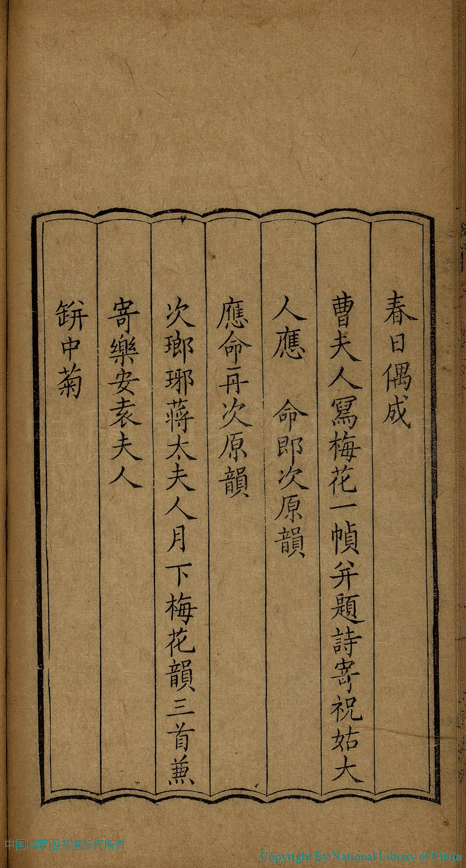 春日偶成
曹夫人寫梅花一幀并題詩寄祝姑大
人應　命即次原韻
應命再次原韻
次瑯琊蔣太夫人月下梅花韻三首兼
寄樂安袁夫人
缾中菊
Copyright By National Library of China